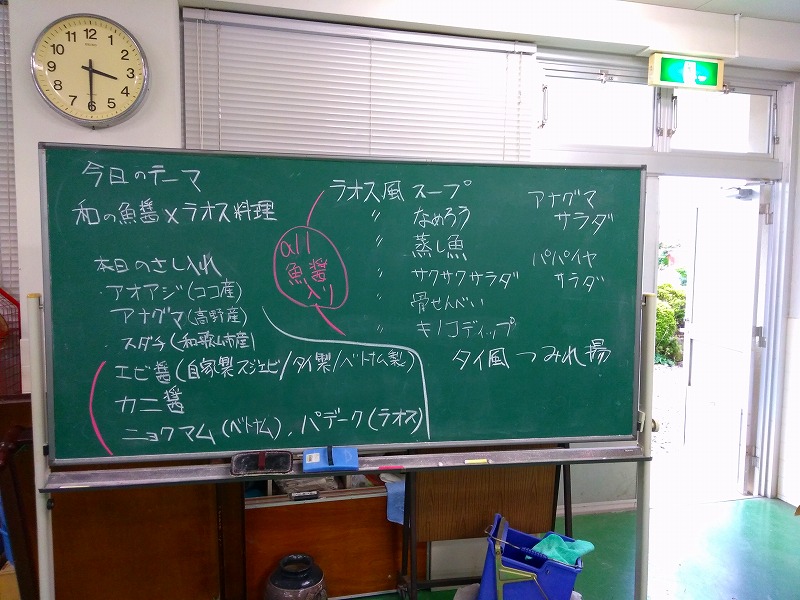 今日のテーマ
和の魚醤×ラオス料理
本日のさし入れ
・アオアジ(ココ産)
アナグマ(高野産)
・スダチ(和歌山市産)
エビ醤(自家製スジエビ/タイ製/ベトナム製)
カニ醤
ニョクマム(ベトナム)、パデーク(ラオス)
all
魚醤
入り
ラオス風 スープ
〃 なめろう
〃 蒸し魚
〃 サクサクサラダ
〃 骨せんべい
〃 キノコディップ
タイ風 つみれ揚
アナグマ
サラダ
パパイヤ
サラダ
12
1
2
3
4
5
6
7
8
9
10
11